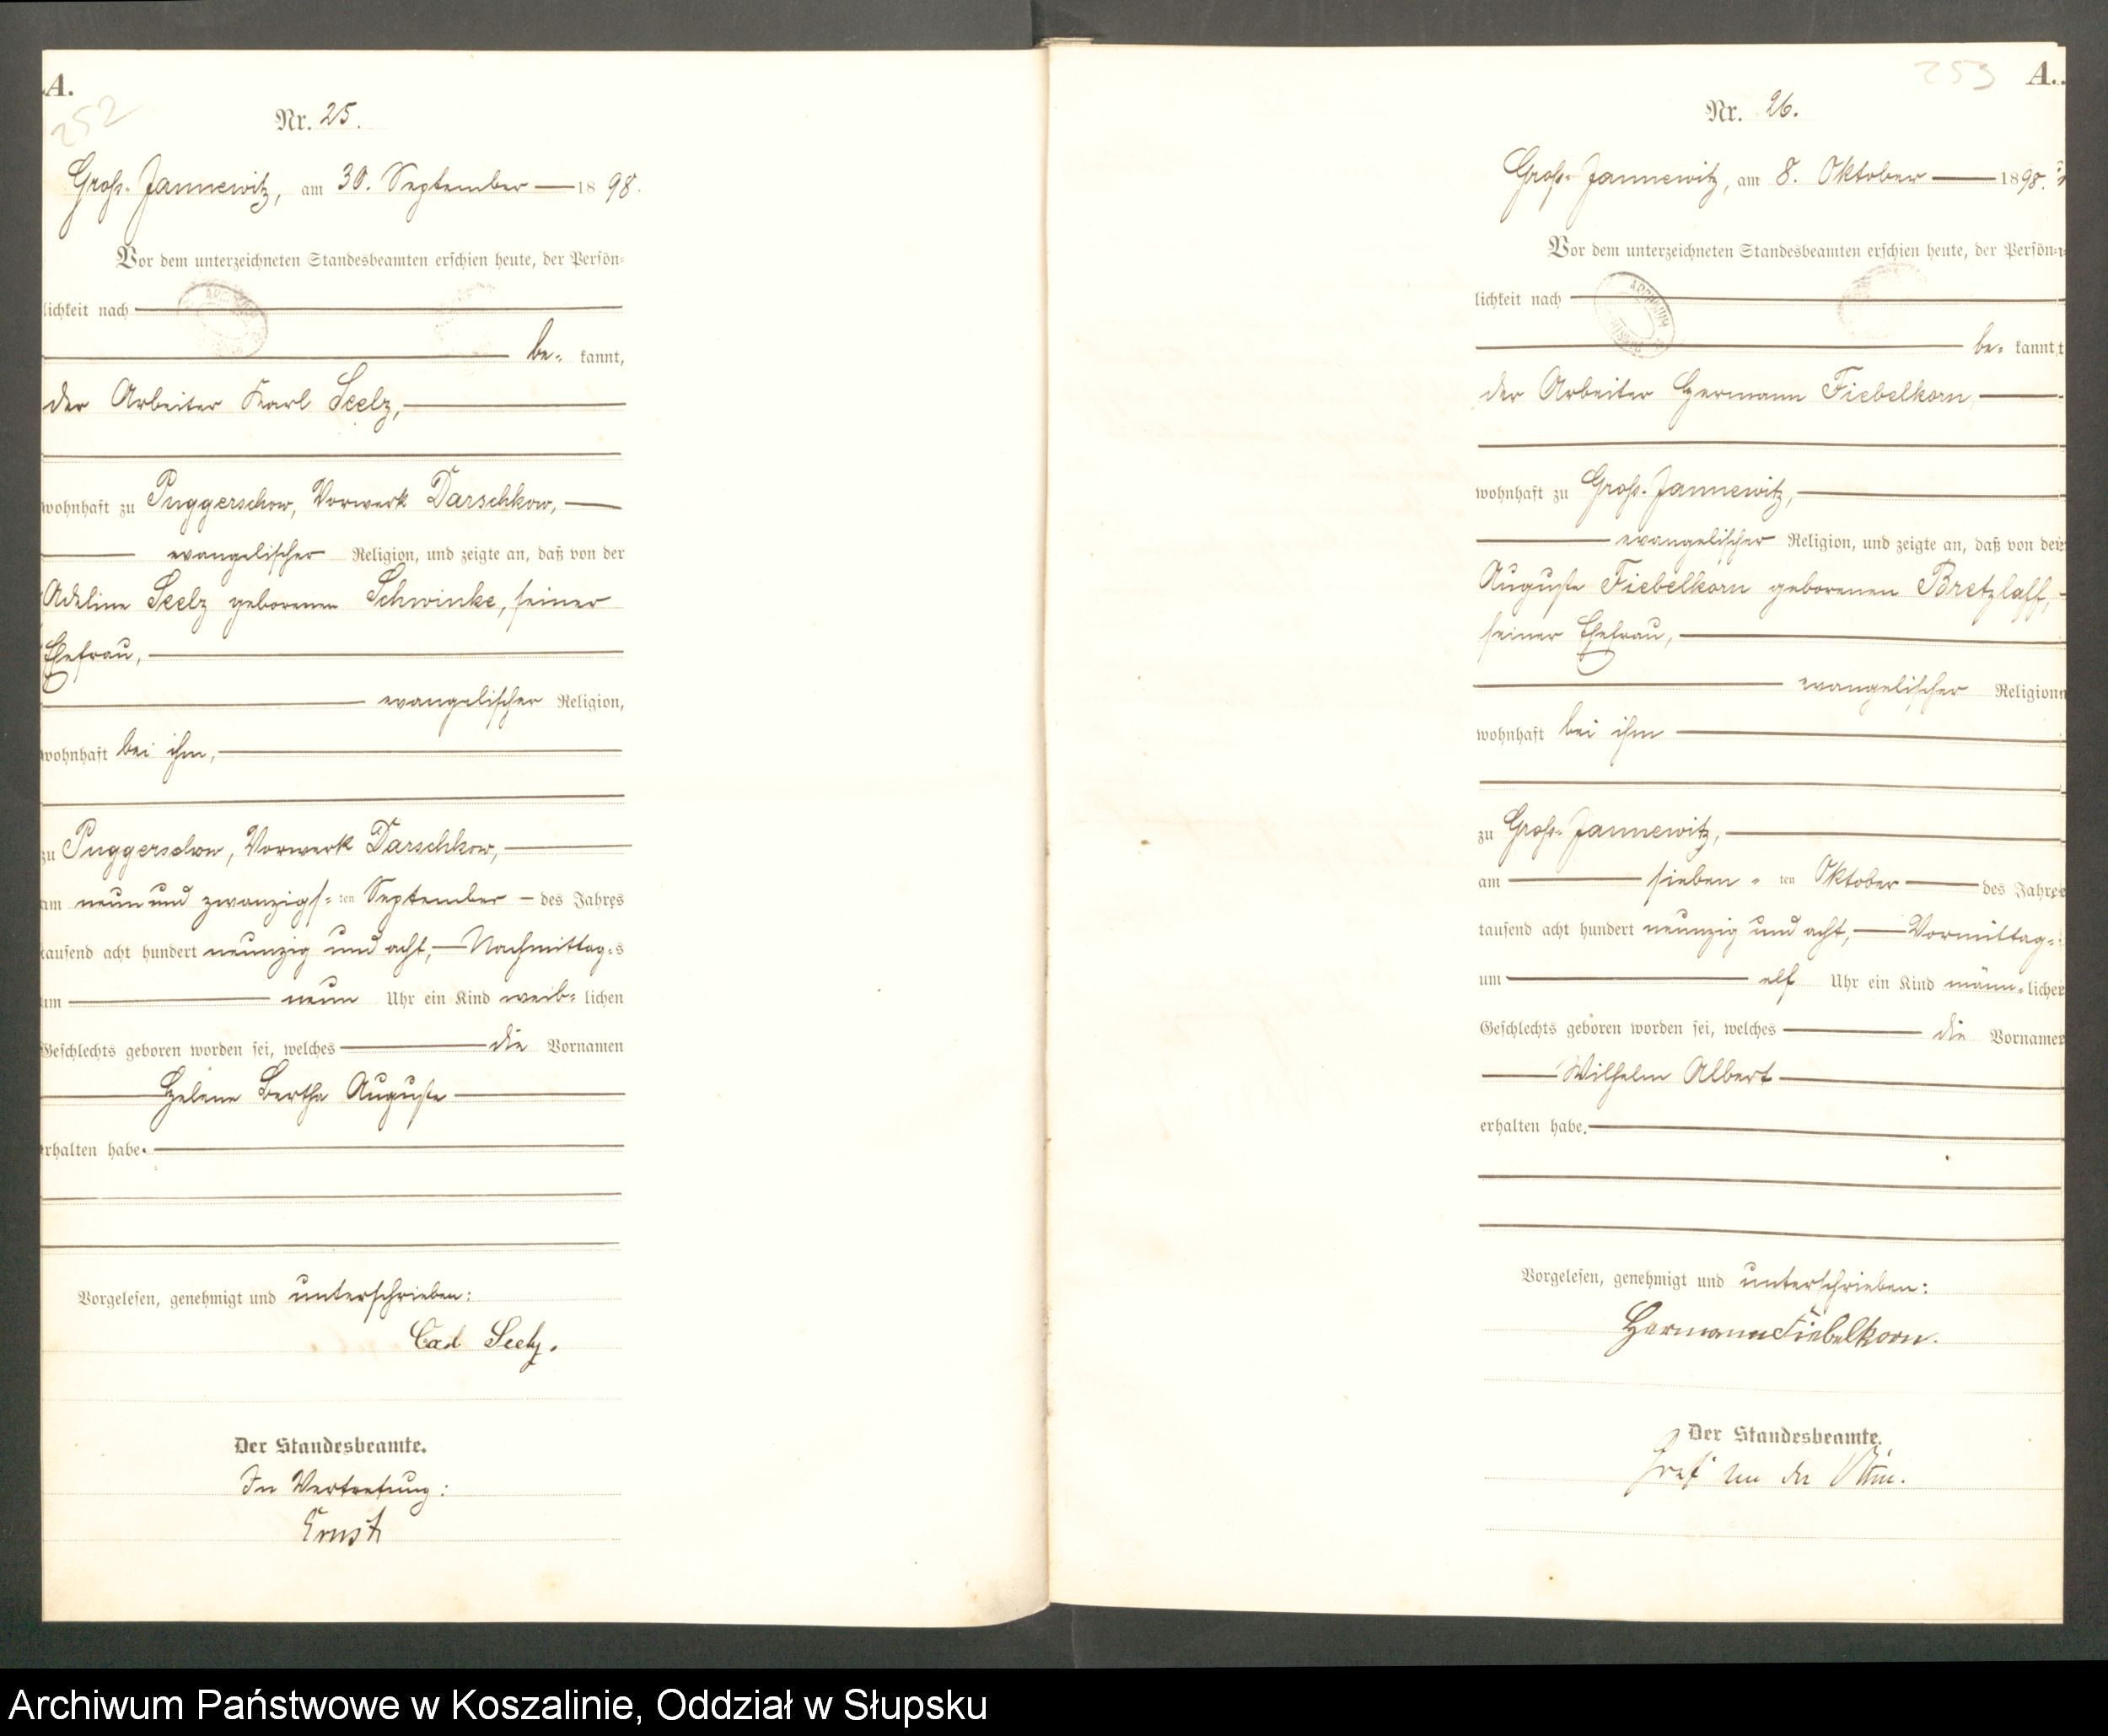 A.
252
Nr. 25.
Groß-Jannewitz, am 30. September 1898.
Vor dem unterzeichneten Standesbeamten erschien heute, der Persön=
lichkeit nach
be= kannt,
der Arbeiter Karl Seelz,
wohnhaft zu Puggerschow, Vorwerk Darschkow,
evangelischer Religion, und zeigte an, daß von der
Adeline Seelz geborenen Schwinke, seiner
Ehefrau,
evangelischer Religion,
wohnhaft bei ihm,
zu Puggerschow, Vorwerk Darschkow,
am neun und zwanzigs=ten September des Jahres
tausend acht hundert neunzig und acht, Nachmittag=s
um neun Uhr ein Kind weib=lichen
Geschlechts geboren worden sei, welches die Vornamen
Helene Bertha Auguste
erhalten habe.
Vorgelesen, genehmigt und unterschrieben:
Carl Seelz.
Der Standesbeamte.
In Vertretung:
Ernst
253
A.
Nr. 26.
Groß-Jannewitz, am 8. Oktober 1898.
Vor dem unterzeichneten Standesbeamten erschien heute, der Persön=
lichkeit nach
be= kannt,
der Arbeiter Hermann Fiebelkorn
wohnhaft zu Groß-Jannewitz,
evangelischer Religion, und zeigte an, daß von der
Auguste Fiebelkorn geborenen Bretzlaff,
seiner Ehefrau,
evangelischer Religion
wohnhaft bei ihm
zu Groß-Jannewitz,
am sieben=ten Oktober des Jahres
tausend acht hundert neunzig und acht, Vormittag=
um elf Uhr ein Kind männ=lichen
Geschlechts geboren worden sei, welches die Vornamen
Wilhelm Albert
erhalten habe.
Vorgelesen, genehmigt und unterschrieben:
Hermann Fiebelkorn.
Der Standesbeamte.
Graf von der
Archiwum Państwowe w Koszalinie, Oddział w Słupsku